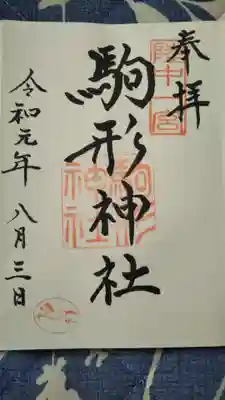 奉拝
陸中一宮
駒形神社
駒形神社
令和元年八月三日